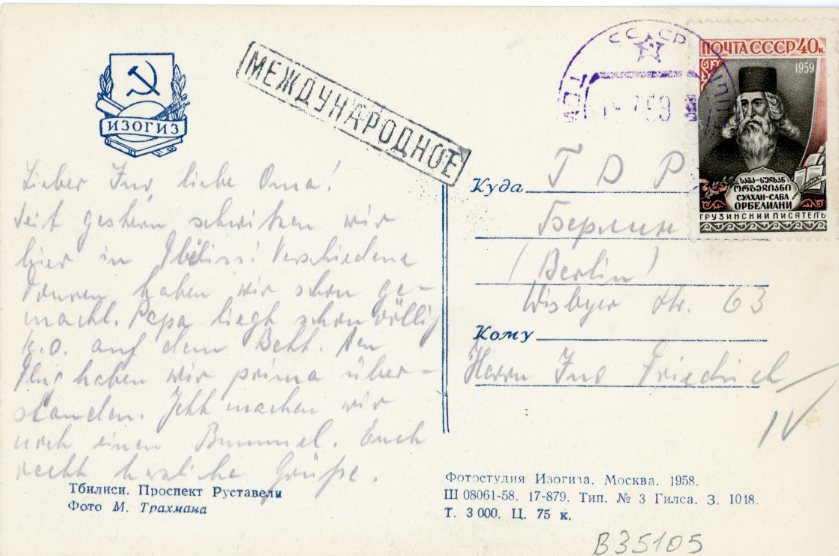 ИЗОГИЗ
МЕЖДУНАРОДНОЕ
СССР
59
ПОЧТА СССР 40к.
1959
ᲡᲐᲑᲐ-ᲡᲣᲚᲮᲐᲜ
ᲝᲠᲑᲔᲚᲘᲐᲜᲘ
СУЛХАН-САБА
ОРБЕЛИАНИ
ГРУЗИНСКИЙ ПИСАТЕЛЬ
Lieber Ino, liebe Oma!
Seit gestern schwitzen wir
hier in Tbiliss! Verschiedene
Touren haben wir schon ge-
macht. Papa liegt schon völlig
k.o. auf dem Bett. Den
Flug haben wir prima über-
standen. Jetzt machen wir
noch einen Bummel. Euch
recht herzliche Grüße.
Куда Г D Р
Берлин
(Berlin)
Wisbyer Str. 63
Кому
Herrn Ino Friedrich
IV
Тбилиси. Проспект Руставели
Фото М. Трахмана
Фотостудия Изогиза. Москва. 1958.
Ш 08061-58. 17-879. Тип. № 3 Гилса. З. 1018.
Т. 3 000. Ц. 75 к.
B35105